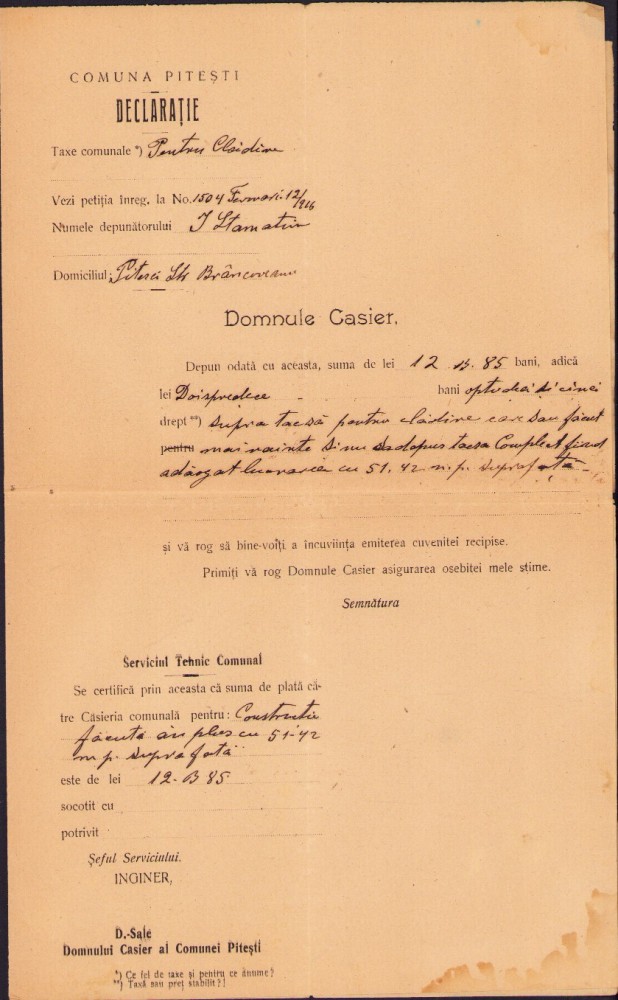 COMUNA PITEȘTI
DECLARAȚIE
Taxe comunale *) Pentru Cladire
Vezi petiția înreg. la No. 1504 Fevruari. 12/916
Numele depunătorului I Stamatin
Domiciliul; Pitesci Str Brâncoveanu
Domnule Casier,
Depun odată cu aceasta, suma de lei 12 B. 85 bani, adică
lei Doispredece bani optzeci si cinci
drept **) supra tacsă pentru clădire care sau făcut
pentru mai nainte si nu sa depus tacsa Complect fiind
adăogat lucrarea cu 51.42 m.p. suprafată
și vă rog să bine-voiți a încuviința emiterea cuvenitei recipise.
Primiți vă rog Domnule Casier asigurarea osebitei mele stime.
Semnătura
Serviciul Tehnic Comunal
Se certifică prin aceasta că suma de plată că-
tre Căsieria comunală pentru: Constructie
făcută în plus cu 51-42
m.p. suprafată
este de lei 12. B 85
socotit cu
potrivit
Șeful Serviciului.
INGINER,
D.-Sale
Domnului Casier al Comunei Pitești
*) Ce fel de taxe și pentru ce anume?
**) Taxă sau preț stabilit?!